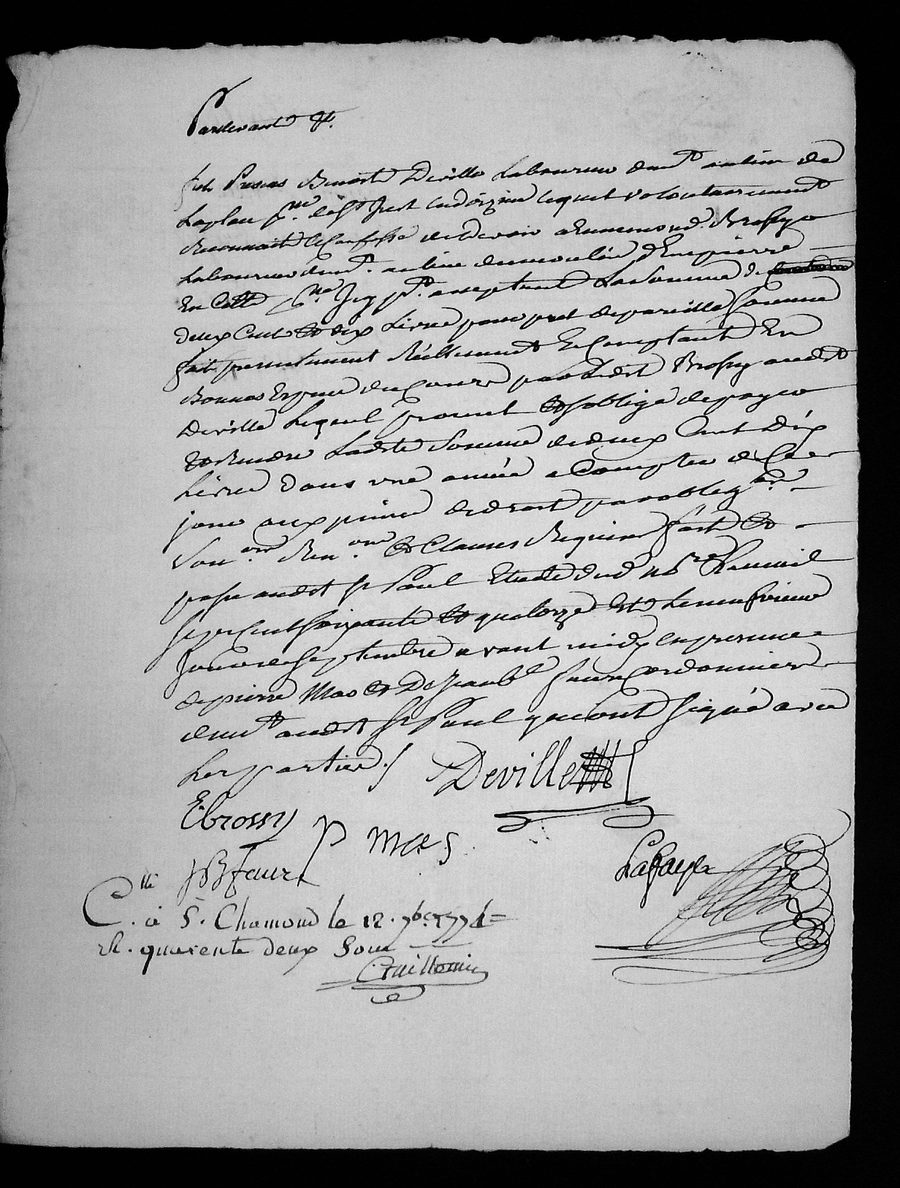 Pardevant &.
fut Presens Benoit Deville Laboureur dem.t au lieu de
Laplau p.sse dud.t St Just en doizieu lequel volontairement
Reconnoit & Confesse devoir a Emmond Brossy
Laboureur dem.t au lieu du moulin d'Enpierre
En Cette p.sse Icy p.t acceptant La Somme de
deux Cent & dix Livre pour pret de pareille Somme
fait presentement Réellement & Comptant En
Bonnes Espece du Cours par ledit Brossy audit
Deville Lequel promet & s'oblige de payer
& Rendre Ladite Somme de deux Cent Dix
Livre dans une année a Compter de Ce
jour aux peine de droit par oblig.on
Son.on Ren.on & Clauses Requises fait &
passé audit St Paul Etude dud. no.re L'an mil
sept Cent soixante & quatorze Et Le neufvieme
Jour de septembre avant midy en presence
de pierre Mas & De Jean B.te faure Cordonniers
dem.t audit St Paul qui ont signé avec
Les partie./ Deville
E brossy
P mas
JB faure
Lafaye
C.lle à S.t Chamond le 12. 7bre 1774
R. quarente deux Sous
Guillemin